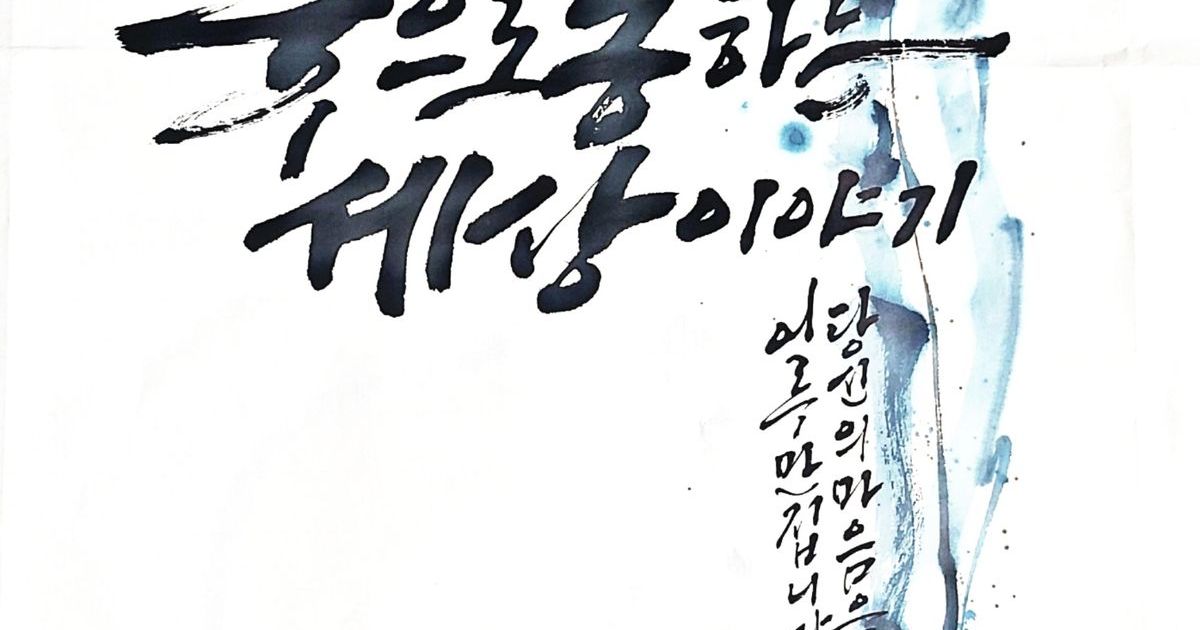 으로 하는
세상 이야기
당신의 마음을
어루만집니다